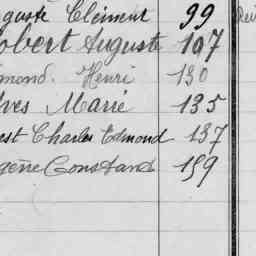 guste Clément 99
obert Auguste 107
mond. Henri 130
Yves Marie 135
est Charles Edmond 137
gène Constant 159